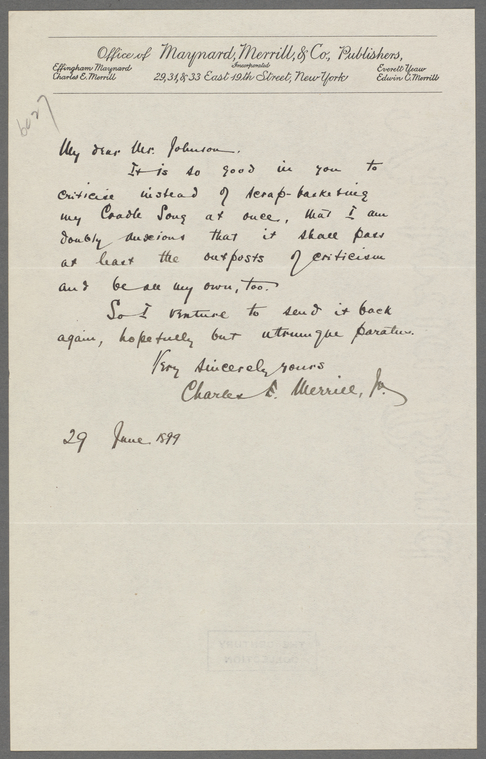 Office of Maynard, Merrill, & Co., Publishers,
Incorporated
Effingham Maynard
Charles E. Merrill
29, 31, & 33 East 19th Street, New York
Everett Yeaw
Edwin C. Merrill
My dear Mr. Johnson.
It is so good in you to
criticise instead of scrap-basketing
my Cradle Song at once, that I am
doubly anxious that it shall pass
at least the outposts of criticism
and be all my own, too.
So I venture to send it back
again, hopefully but utrumque paratus.
Very sincerely yours
Charles E. Merrill, Jr.
29 June 1899